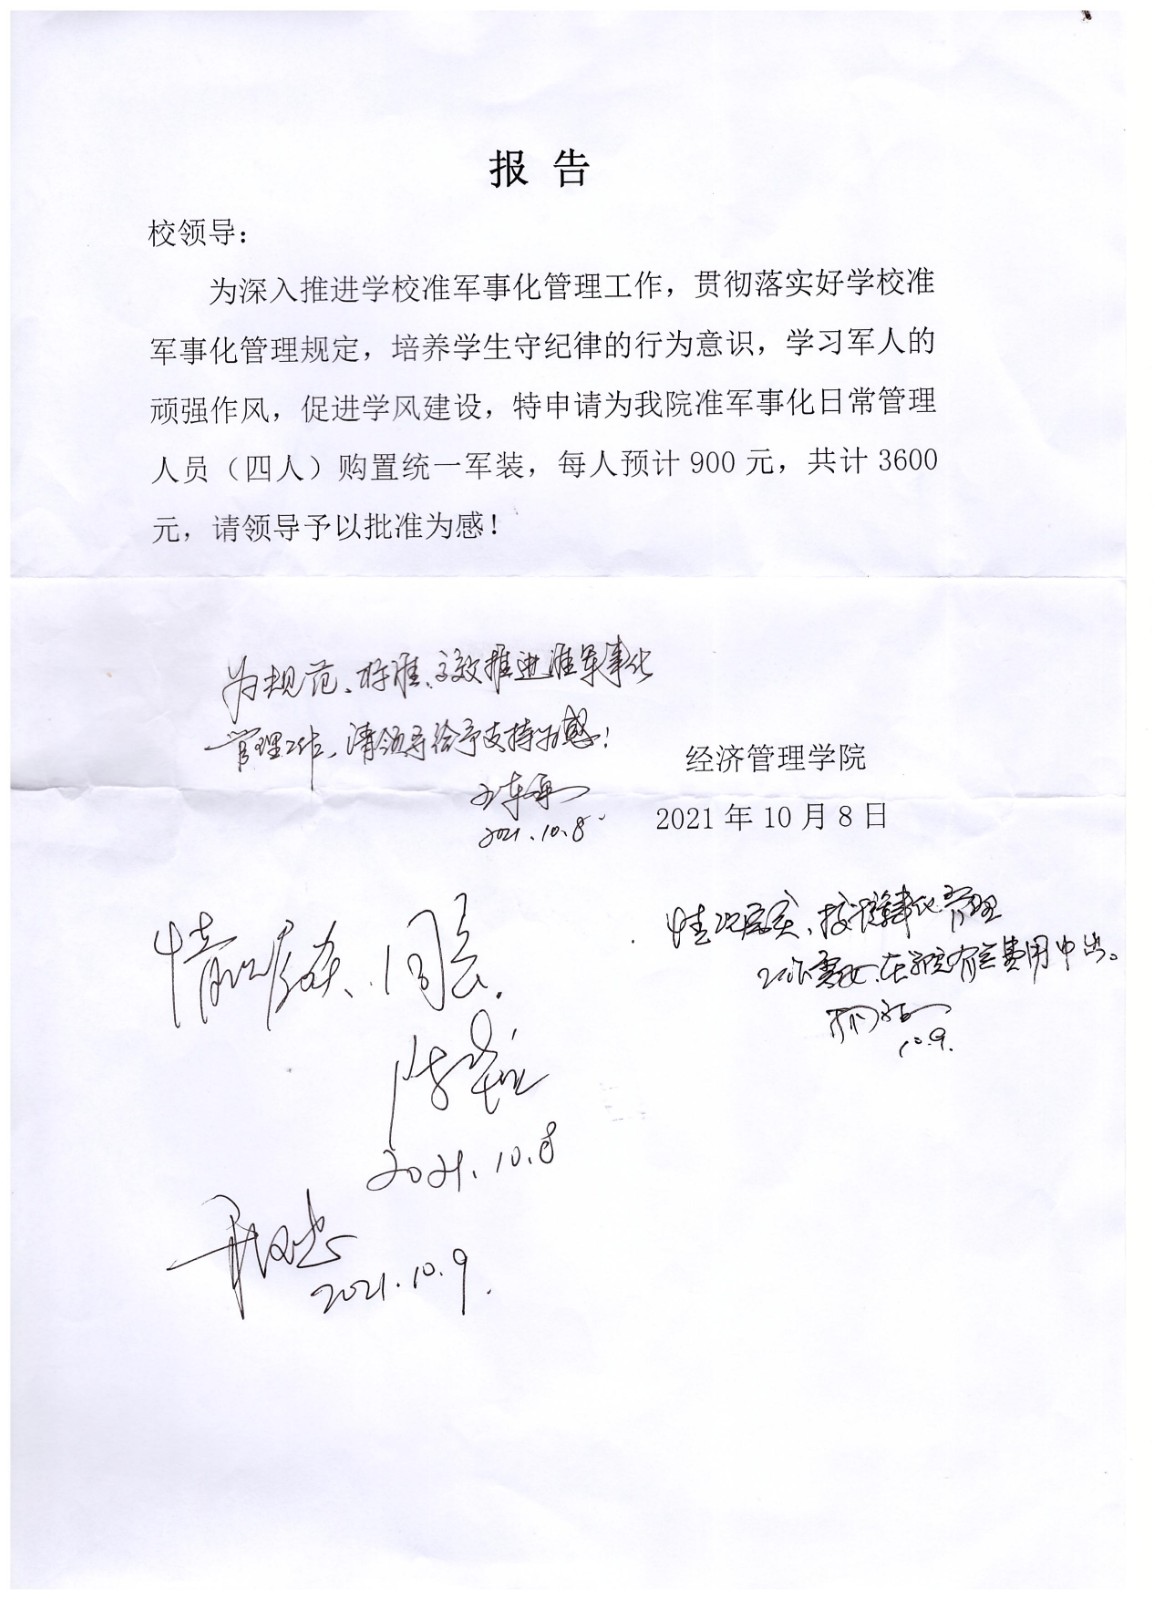 报 告
校领导：
为深入推进学校准军事化管理工作，贯彻落实好学校准
军事化管理规定，培养学生守纪律的行为意识，学习军人的
顽强作风，促进学风建设，特申请为我院准军事化日常管理
人员（四人）购置统一军装，每人预计 900 元，共计 3600
元，请领导予以批准为感！
为规范、标准、高效推进准军事化
管理工作，请领导给予支持为感！
2021.10.8
经济管理学院
2021 年 10 月 8 日
情况属实、同意.
2021.10.8
情况属实、按准军事化管理
工作需要、在学院有关费用中出。
10.9.
2021.10.9.